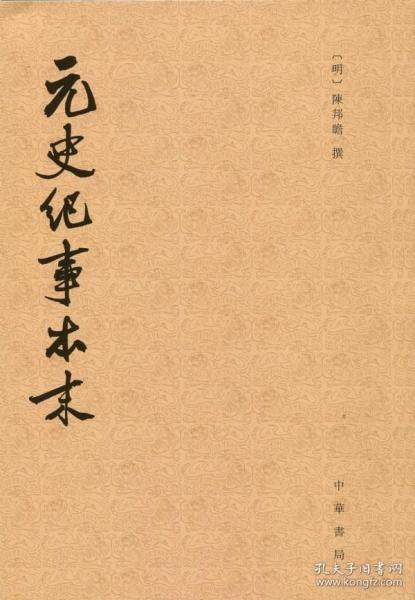 元史纪事本末
〔明〕陳邦瞻 撰
中華書局
孔夫子旧书网
www.kongfz.com